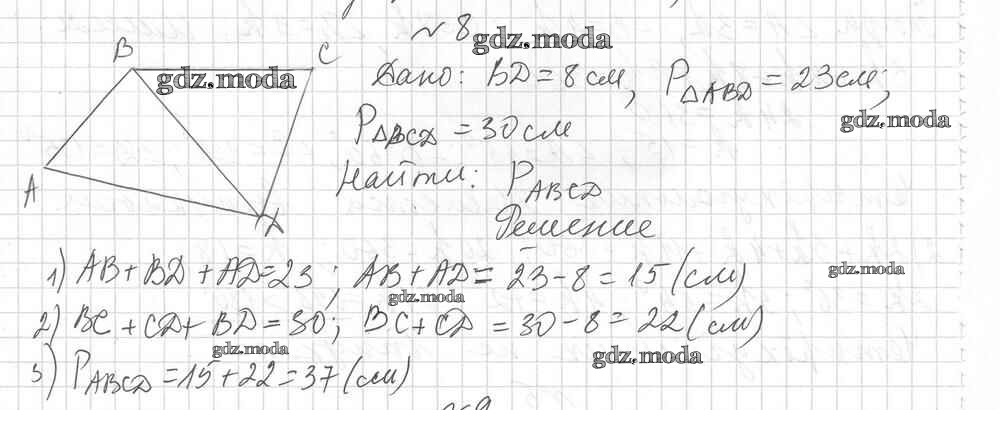 № 8 gdz.moda
B C
gdz.moda
Дано: BD = 8 см, P△ABD = 23 см;
gdz.moda
P△BCD = 30 см
A
Найти: PABCD
D
Решение
1) AB + BD + AD = 23; AB + AD = 23 - 8 = 15 (см)
gdz.moda
gdz.moda
2) BC + CD + BD = 30; BC + CD = 30 - 8 = 22 (см)
gdz.moda
gdz.moda
3) PABCD = 15 + 22 = 37 (см)